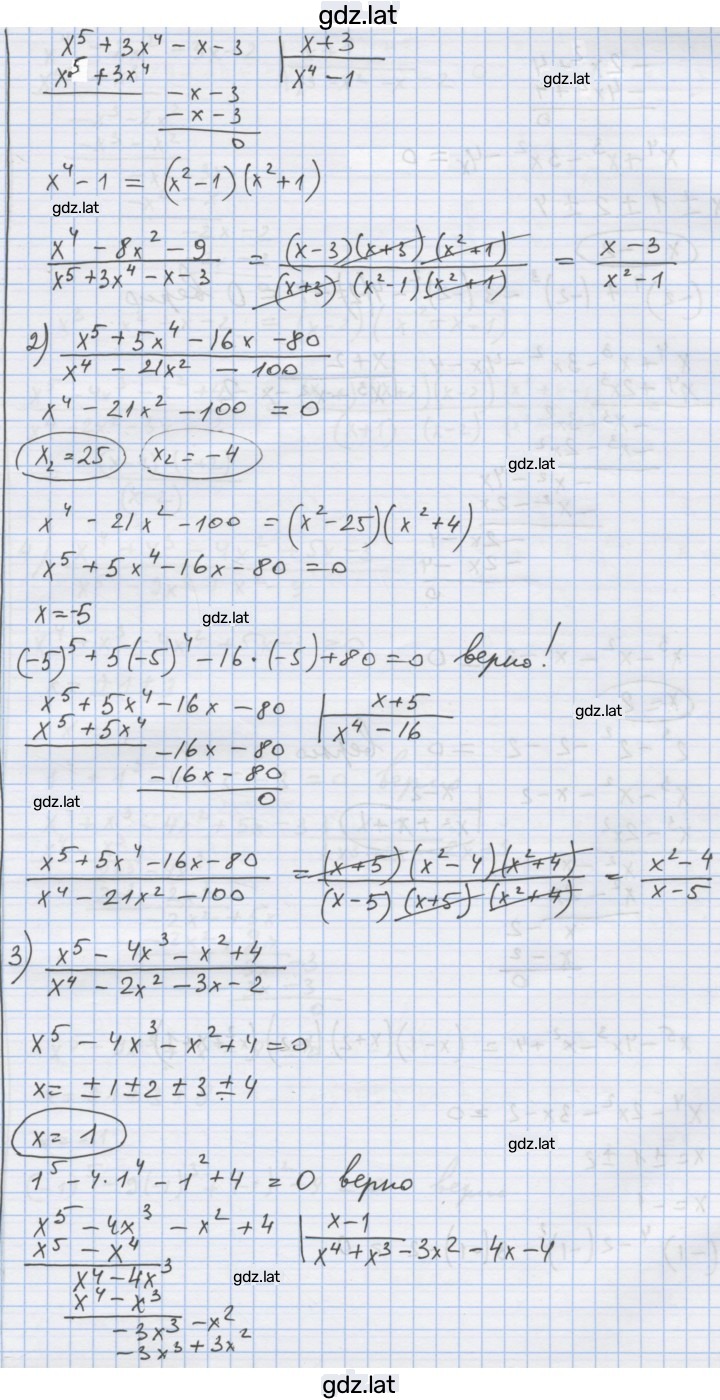 gdz.lat
x⁵ + 3x⁴ - x - 3 | x+3
x⁵ + 3x⁴ x⁴ - 1
gdz.lat
- x - 3
- x - 3
0
x⁴ - 1 = (x² - 1)(x² + 1)
gdz.lat
(x⁴ - 8x² - 9)/(x⁵ + 3x⁴ - x - 3) = ((x-3)(x+3)(x²+1))/((x+3)(x²-1)(x²+1)) = (x-3)/(x²-1)
2) (x⁵ + 5x⁴ - 16x - 80)/(x⁴ - 21x² - 100)
x⁴ - 21x² - 100 = 0
x₂ = 25 x₂ = -4
gdz.lat
x⁴ - 21x² - 100 = (x² - 25)(x² + 4)
x⁵ + 5x⁴ - 16x - 80 = 0
x = -5 gdz.lat
(-5)⁵ + 5(-5)⁴ - 16·(-5) + 80 = 0 верно!
x⁵ + 5x⁴ - 16x - 80 | x+5
x⁵ + 5x⁴ x⁴ - 16
gdz.lat
- 16x - 80
- 16x - 80
0
gdz.lat
(x⁵ + 5x⁴ - 16x - 80)/(x⁴ - 21x² - 100) = ((x+5)(x²-4)(x²+4))/((x-5)(x+5)(x²+4)) = (x²-4)/(x-5)
3) (x⁵ - 4x³ - x² + 4)/(x⁴ - 2x² - 3x - 2)
x⁵ - 4x³ - x² + 4 = 0
x = ±1 ±2 ±3 ±4
x = 1
gdz.lat
1⁵ - 4·1⁴ - 1² + 4 = 0 верно
x⁵ - 4x³ - x² + 4 | x-1
x⁵ - x⁴ x⁴ + x³ - 3x² - 4x - 4
x⁴ - 4x³ gdz.lat
x⁴ - x³
- 3x³ - x²
- 3x³ + 3x²
gdz.lat